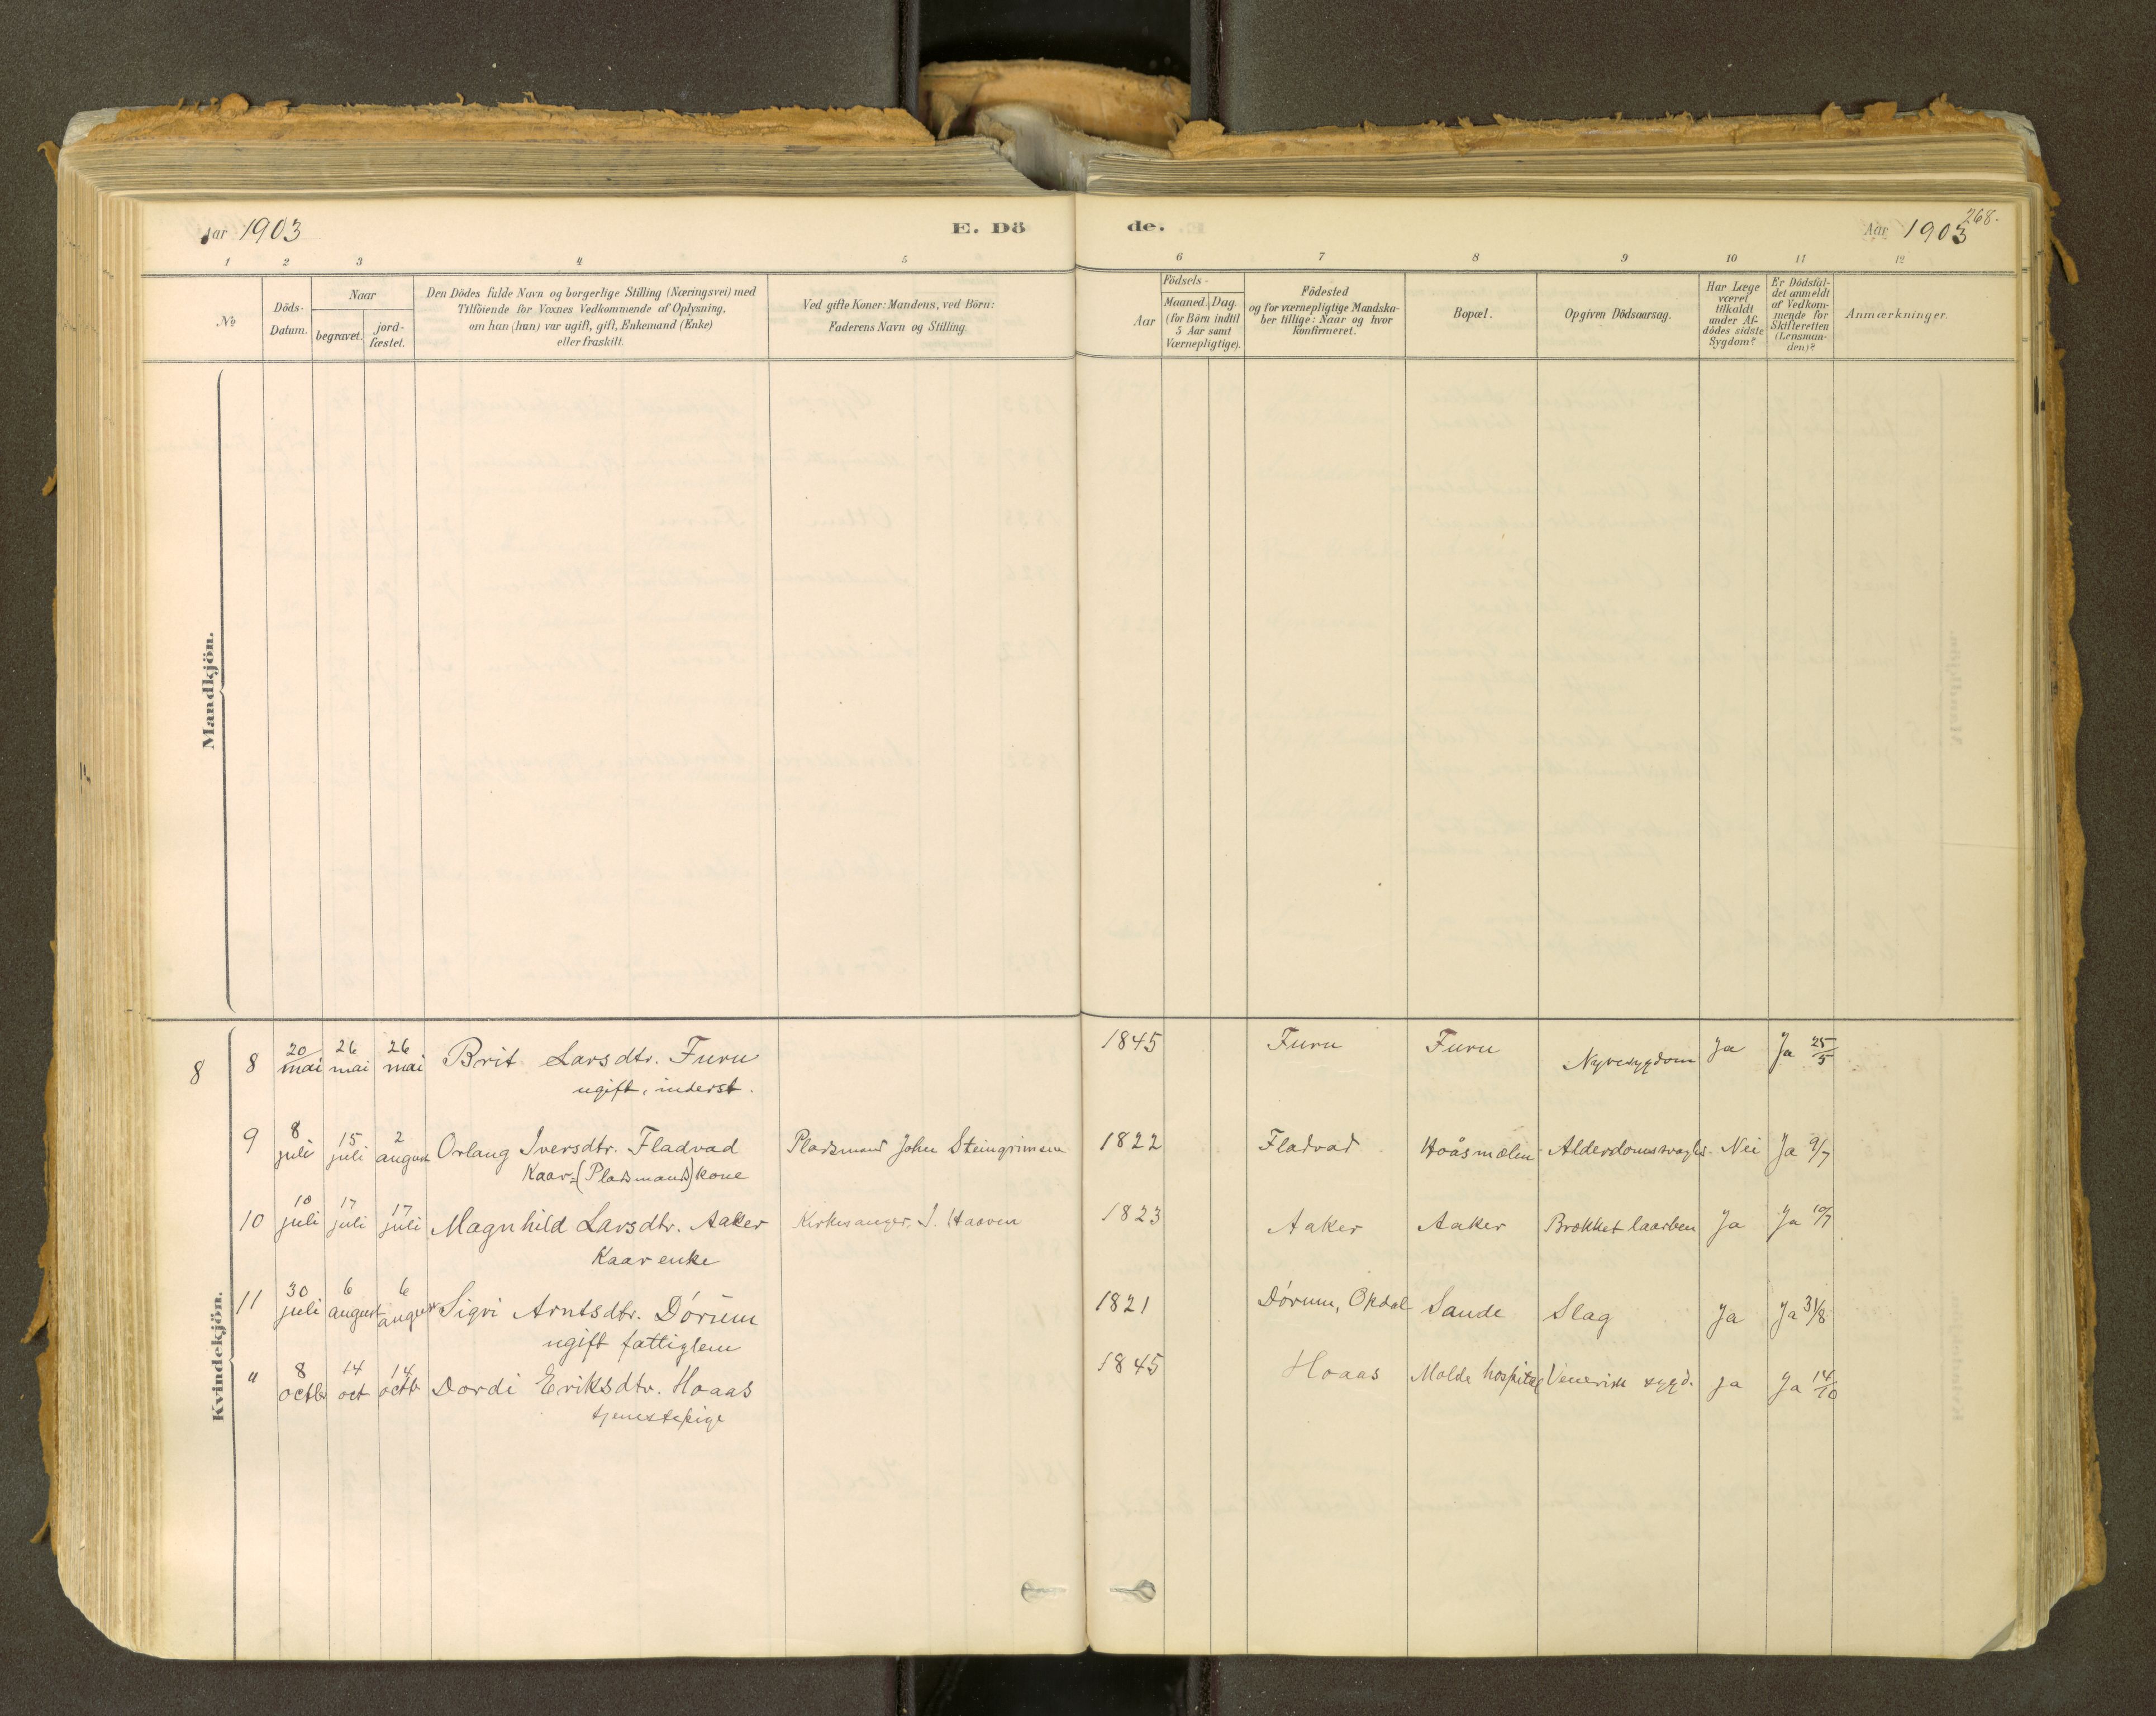 Aar 1903
E. Dö
de.
268.
Aar 1903
1 2 3 4 5 6 7 8 9 10 11 12
No
Döds-
Datum.
Naar
begravet.
jord-
fæstet.
Den Dödes fulde Navn og borgerlige Stilling (Næringsvei) med
Tilföiende for Voxnes Vedkommende af Oplysning,
om han (hun) var ugift, gift, Enkemand (Enke)
eller fraskilt.
Ved gifte Koner: Mandens, ved Börn:
Faderens Navn og Stilling.
Födsels-
Aar
Maaned. Dag.
(for Börn indtil
5 Aar samt
Værnepligtige).
Födested
og for værnepligtige Mandska-
ber tillige: Naar og hvor
konfirmeret.
Bopæl.
Opgiven Dödsaarsag.
Har Læge
været
tilkaldt
under Af-
dödes sidste
Sygdom?
Er Dödsfal-
det anmeldt
af Vedkom-
mende for
Skifteretten
(Lensman-
den)?
Anmærkninger.
Mandkjön.
Kvindekjön.
8
8 20 mai 26 mai 26 mai Brit Larsdtr. Furu 1845 Furu Furu Nyresygdom Ja Ja 25/5
ugift, inderst.
9 8 juli 15 juli 2 august Orlaug Iversdtr. Fladvad Pladsmand John Steingrimsen 1822 Fladvad Hoåsmælen Nei Ja 9/7
Kaar-(Pladsmands)kone
10 10 juli 17 juli 17 juli Magnhild Larsdtr. Aaker Kirkesanger, J. Haaven 1823 Aaker Aaker Brækket laarben Ja Ja 10/7
Kaarenke
11 30 juli 6 august 6 august Sigri Arntsdtr. Dórum 1821 Dórum, Opdal Sande Slag Ja Ja 31/8
ugift fattiglem
" 8 octbr 14 oct 14 octb Dordi Eriksdtr. Hoaas 1845 Hoaas Molde hospital Venerisk sygd. Ja Ja 14/10
tjenestepige